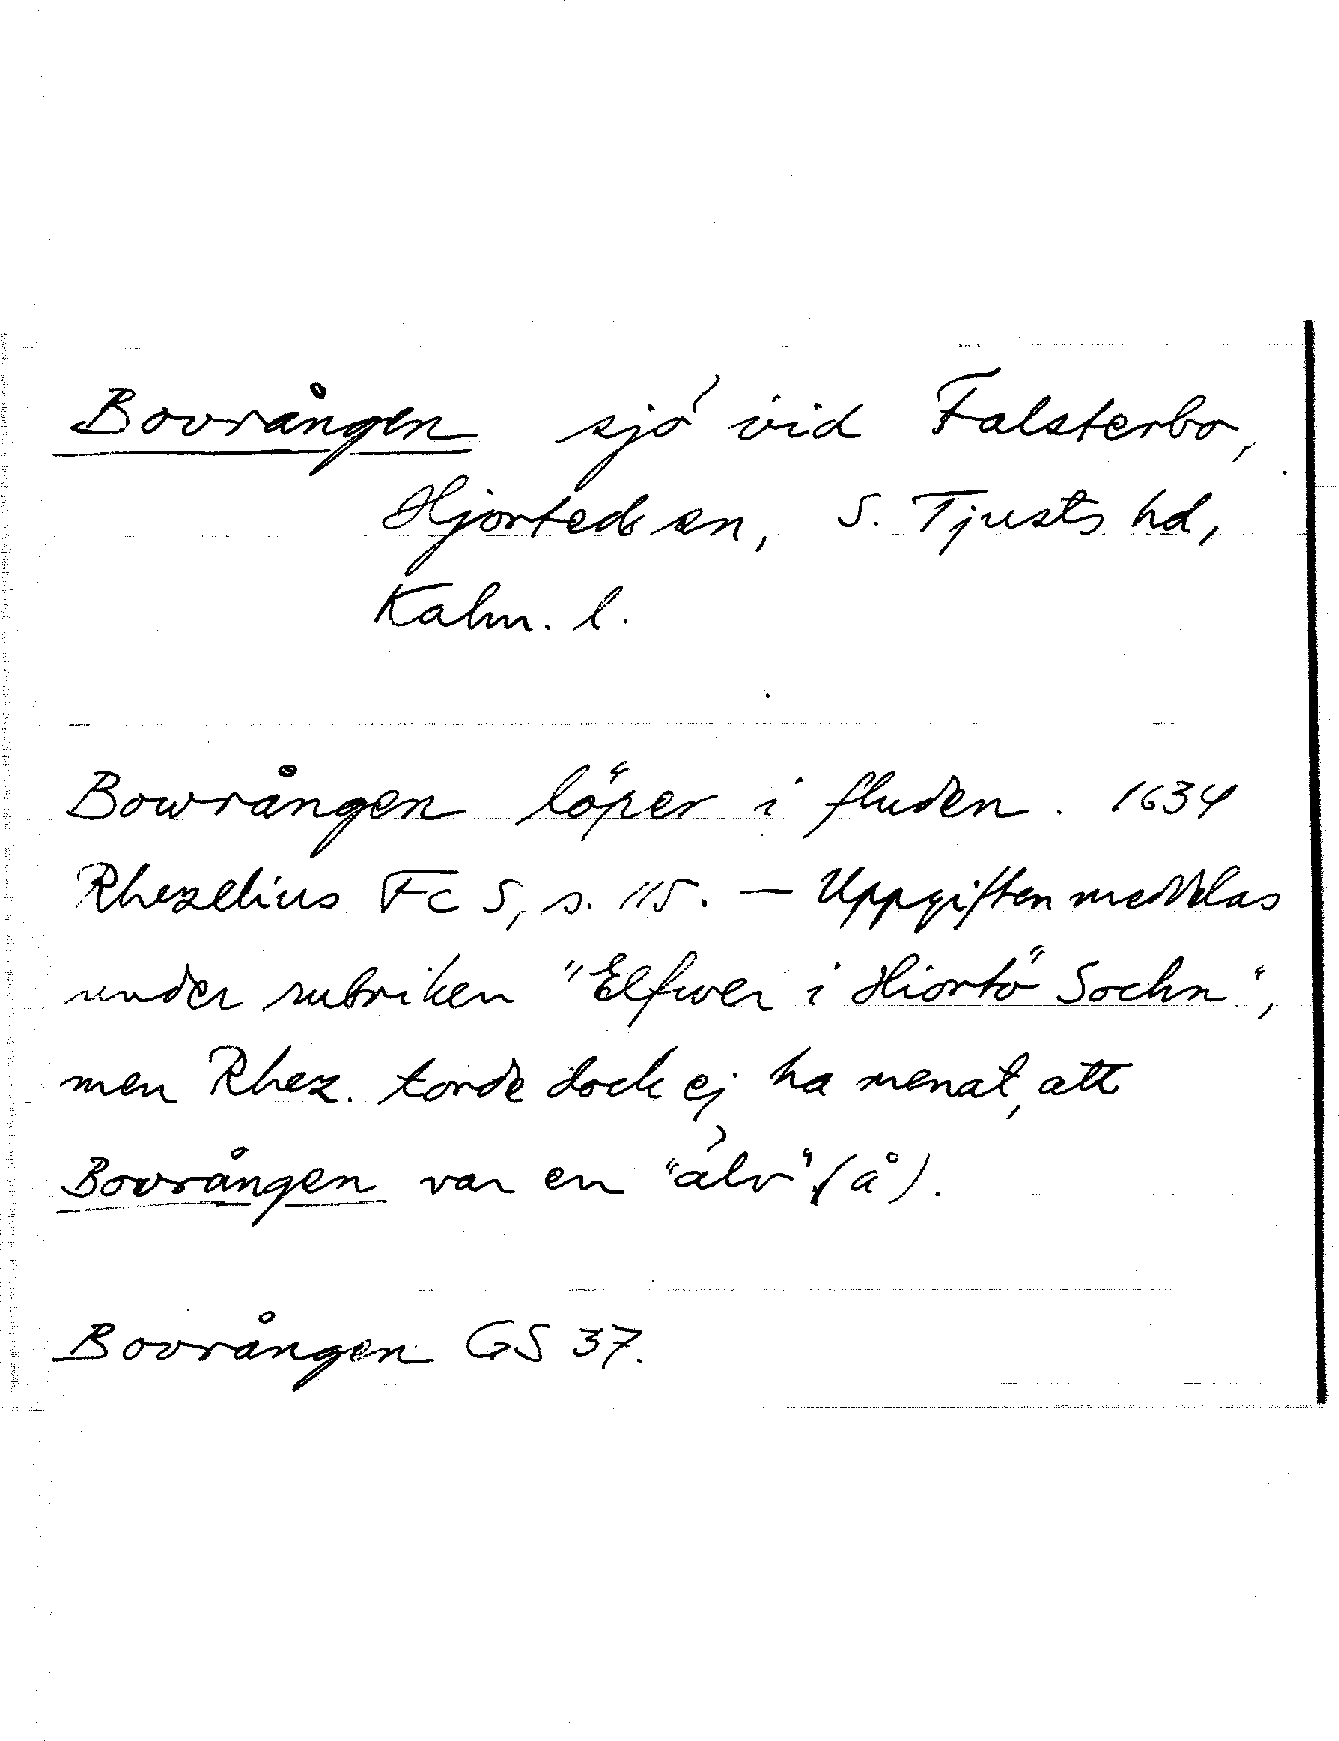 Bovrången sjö vid Falsterbo,
Hjorteds sn, S. Tjusts hd,
Kalm. l.
Bowrången löper i fluden. 1634
Rhezelius Fc 5, s. 115. — Uppgiften meddelas
under rubriken "Elfwer i Hiortö Sochn",
men Rhez. torde dock ej ha menat, att
Bovrången var en "älv" (å).
Bovrången GS 37.